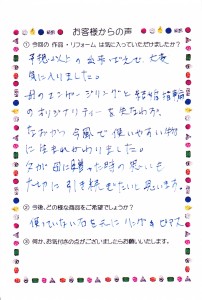 お客様からの声
①今回の 作品・リフォーム は気に入っていただけましたか?
予想以上の 出来ばえで 大変
気に入りました。
母のエンゲージリングと 結婚指輪
のオリジナリティーを生かながら、
なおかつ 今風で使いやすい物
に生まれかわりました。
父が母に贈った時の思いも
大切に引き継ぎたいと思います。
②今後、どの様な商品をご希望でしょうか?
使っていない石を元に リング & ピアス
③何か、お気付きの点がございましたらお願いいたします。